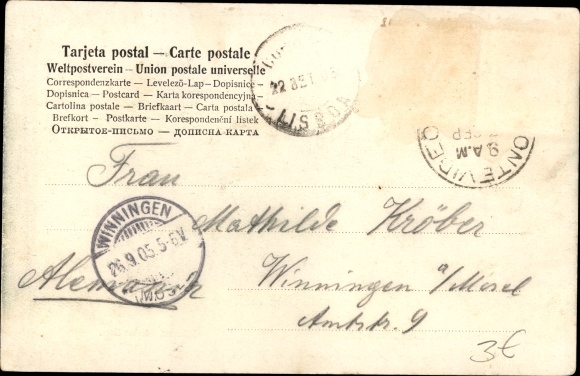 Tarjeta postal — Carte postale
Weltpostverein — Union postale universelle
Correspondenzkarte — Levelező-Lap — Dopisnice —
Dopisnica — Postcard — Karta korespondencyjna —
Cartolina postale — Briefkaart — Carta postala
Brefkort — Postkarte — Korespondenční lístek
Открытое-письмо — дописна карта
22 SET 05
LISBOA
9 A.M
SEP
MONTEVIDEO
Frau
Mathilde Kröber
WINNINGEN
26.9.05.5-6V.
Winningen a/Mosel
Alemania
Amtstr. 9
3€